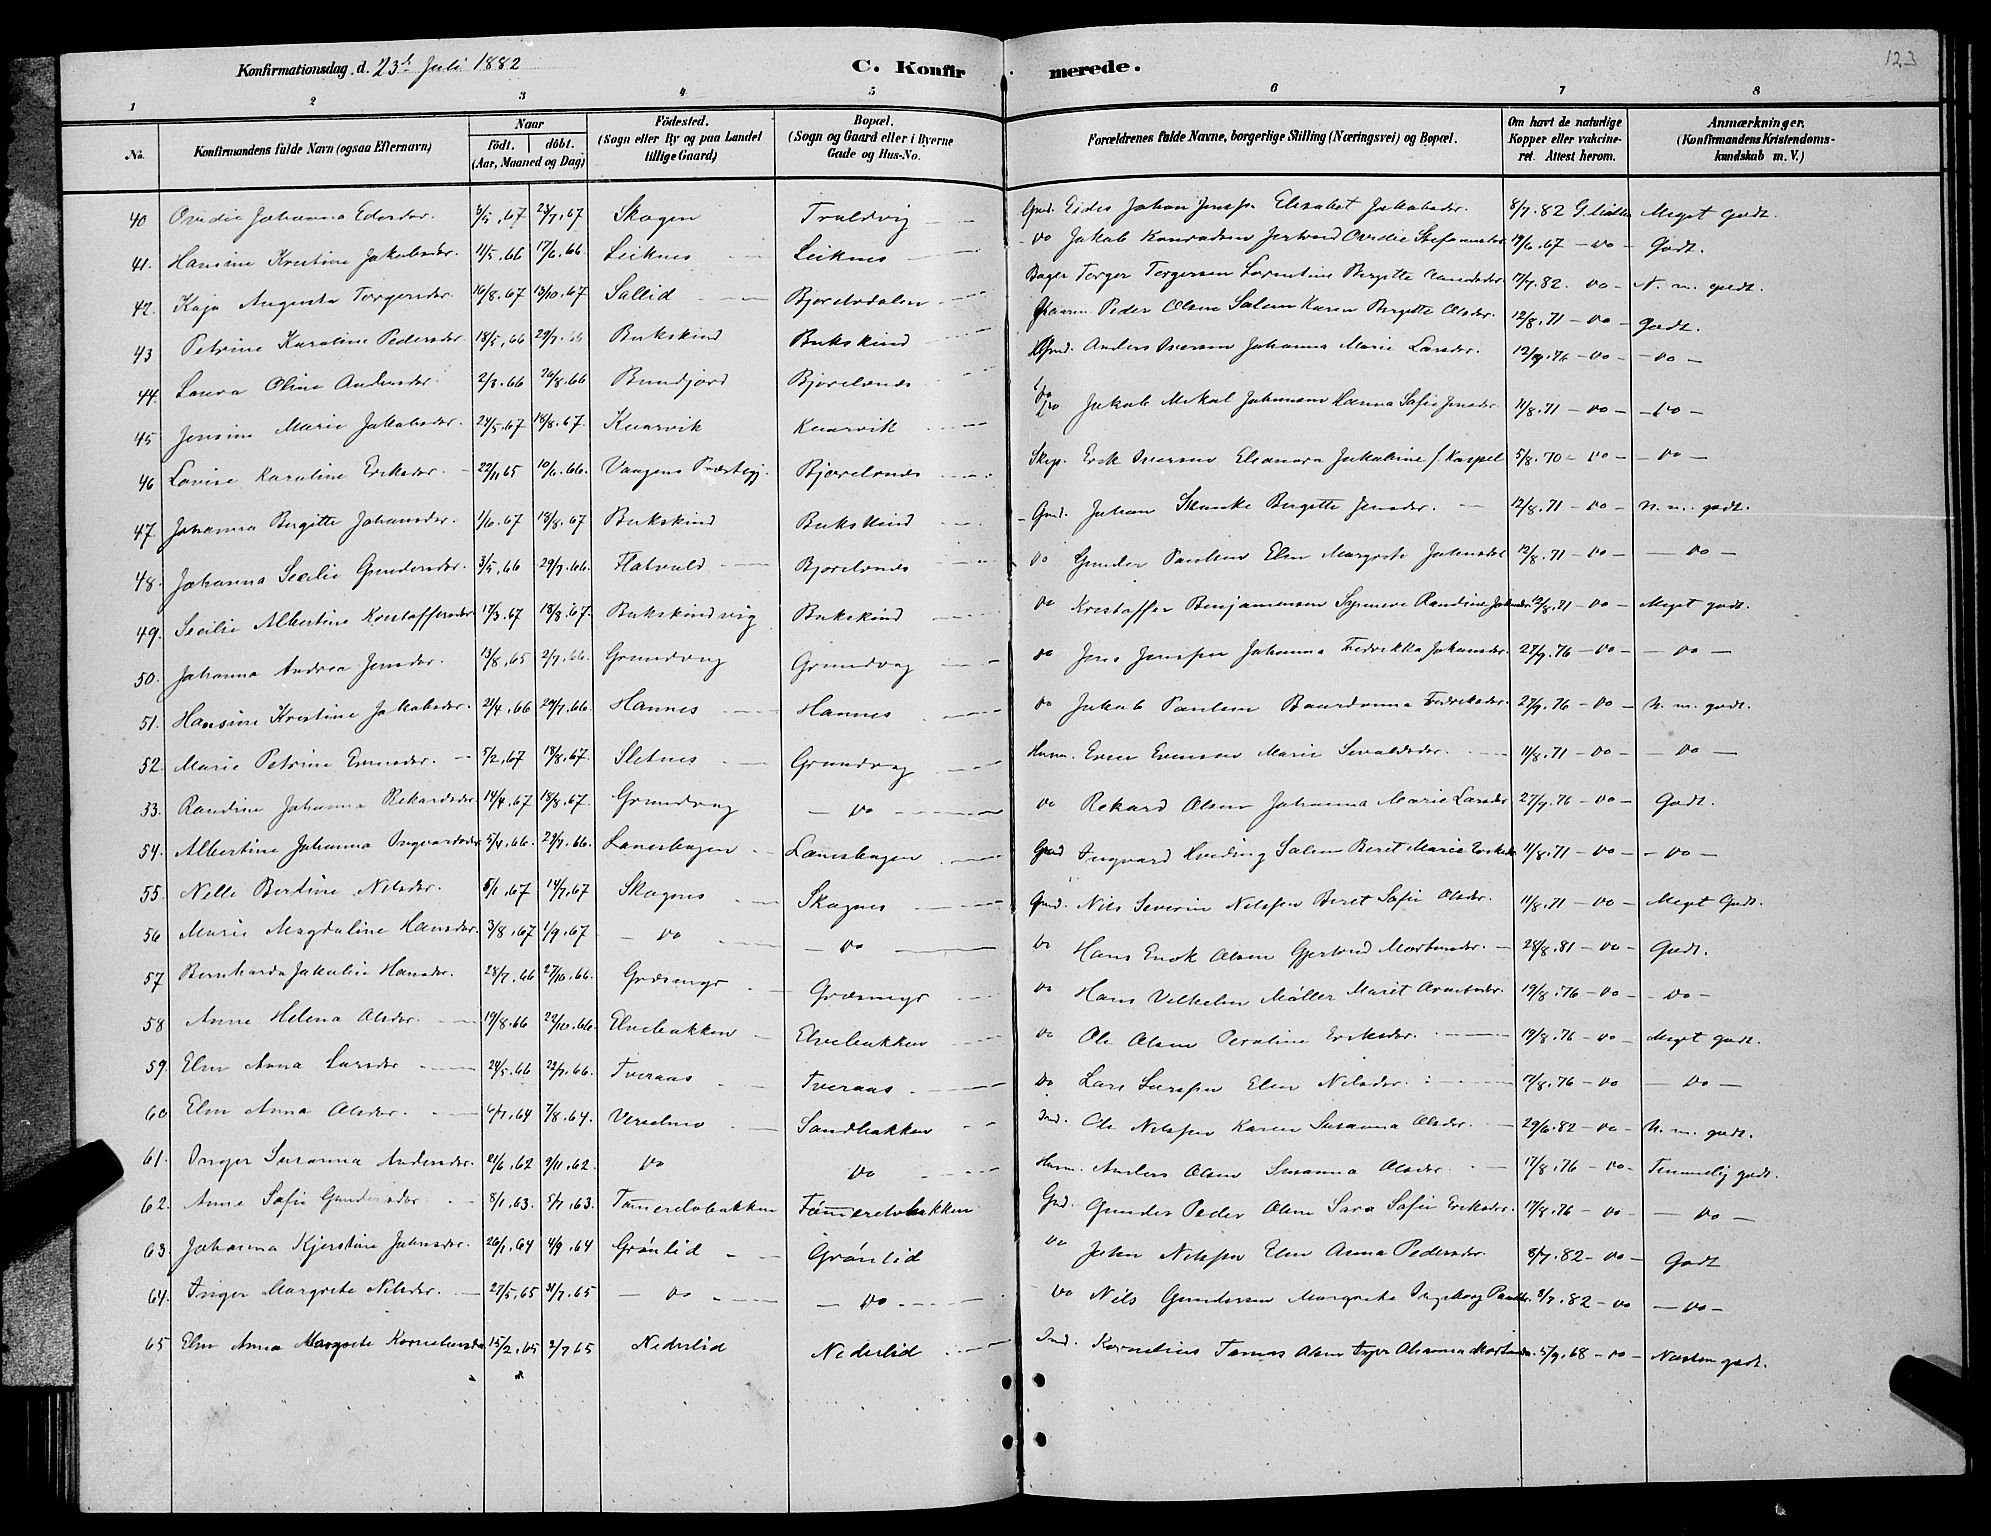 Konfirmationsdag d. 23de Juli 1882 C. Konfirmerede. 123
1 2 3 4 5 6 7 8
No. Konfirmandens fulde Navn (ogsaa Efternavn) Naar født. døbt. (Aar, Maaned og Dag) Födested. (Sogn eller By og paa Landet tillige Gaard) Bopæl. (Sogn og Gaard eller i Byerne Gade og Hus-No. Forældrenes fulde Navne, borgerlige Stilling (Næringsvei) og Bopæl. Om havt de naturlige Kopper eller vakcineret. Attest herom. Anmærkninger. (Konfirmandens Kristendomskundskab m. V.)
40 Ovidie Johanna Edesdtr. 3/5.67 23/7.67 Skogen Traldvig Gmd. Eides Johan Jenssen Elisabet Jakobsdtr. 8/7.82 Meget godt.
41. Hansine Kristine Jakobsdtr. 11/5.66 17/6.66 Leiknes Leiknes Do Jakob Konradsen Jertrud Ovidie Stefansdtr 19/6.67 - Do - Godt.
42. Kaja Augusta Torgersdtr. 16/8.67 13/10.67 Sallid Bjorelvdalen Bager Torger Torgersen Lorentine Birgitte 17/7.82. Do - N. m. godt.
43 Petrine Karoline Pedersdtr 18/5.66 29/7.66 Bukskind Bukskind Peder Olsen Salum Karen Birgitte Olsdtr. 12/8.71 - Do - Godt.
44. Laura Oline Andersdtr. 2/3.66 26/8.66 Bundjord Bjorelvnes Gmd. Anders Iversen Johanna Marie Larsdtr. 12/9.76 - Do - - Do -
45 Jensine Marie Jakobsdtr. 24/5.67 18/8.67. Kuarvik Kuarvik Do Jakob Mikal Johansen Hanna Sofie Jensdtr. 11/8.71 - Do - - Do -
46 Lovise Karoline Eriksdtr. 22/11.65 10/6.66. Vaagens Præstegj. Bjorelvnes Skip. Erik Iversen Eleonora Jakobine f. Kaspel 5/8.70 - Do - - Do -
47. Johanna Birgitte Johansdtr. 1/6.67 18/8.67 Bukskind Bukskind Gmd. Johan Skanke Birgitte Jensdtr. 12/8.71 - Do - N. m. godt.
48. Johanna Secilie Gundersdtr. 3/5.66 29/7.66. Flatvold Bjorelvnes Do Gunder Paulsen Elen Margrete Johnsdtr 12/8.71 - Do - - Do -
49. Secilie Albertine Kristoffersdtr 17/3.67 18/8.67. Bukskindvig Bukskind Do Kristoffer Benjaminsen Synneve Randine 12/8.71 - Do - Meget godt.
50. Johanna Andrea Jensdtr. 13/8.65 2/7.66. Grundvag Grundvag Do Jens Jenssen Johanna Fredrikka Johansdtr. 27/9.76 - Do - - Do -
51. Hansine Kristine Jakobsdtr. 21/4.66 29/7.66. Hannes Hannes Do Jakob Paulsen Baardanna Fredriksdtr. 27/9.76 - Do - N. m. godt.
52. Marie Petrine Evensdtr. 5/2.67 18/8.67. Sletnes Grundvag Husm. Even Evensen Marie Sivaldsdtr. 11/8.71 - Do - - Do -
53. Randine Johanna Rekardsdtr 14/4.67 18/8.67. Grundvag - Do - Do Rekard Olsen Johanna Marie Larsdtr 27/7.76 - Do - Godt.
54. Albertine Johanna Ingvardsdtr 5/4.66. 29/7.66. Laneshagen Laneshagen Gmd Ingvard Hveding Salum Beret Marie Eriksdtr 11/8.71 - Do - - Do -
55. Nelle Bertine Nilsdtr. 5/1.67 14/7.67 Skognes Skognes Gmd. Nils Severin Nilssen Beret Sofie Olsdtr. 11/8.71 - Do - Meget Godt.
56 Marie Magdaline Hansdtr. 3/8.67 1/9.67 - Do - Do Do Hans Enok Olsen Gjertrud Mortensdtr. 28/8.81 - Do - Godt.
57 Bernharda Jakobie Hansdtr. 28/7.66 27/10.66. Græsmyr Græsmyr Do Hans Vilhelm Møller Maret Arntsdtr. 19/8.76 - Do - - Do -
58 Anne Helena Olsdtr. 19/8.66 22/10.66. Elvebakken Elvebakken Do Ole Olsen Peroline Eriksdtr. 19/8.76 - Do - Meget godt.
59. Elen Anna Larsdtr 24/5.66 22/7.66. Tveraas Tveraas Do Lars Larssen Elen Nilsdtr. 17/8.76 - Do - Do -
60. Elen Anna Olsdtr. 6/7.64 7/8.64. Verselmo Sandbakken Ind. Ole Nilssen Karen Susanna Olsdtr. 29/6.82 - Do - N. m. godt.
61. Inger Susanna Andersdtr. 21/6.62 9/11.62. Do Do Husm. Anders Olsen Susanna Olsdtr. 17/8.76 - Do - Temmelig godt.
62. Anne Sofie Gundersdtr 8/1.63. 5/7.63. Tømerelvbakken Tømerelvbakken Gmd. Gunder Peder Olsen Sara Sofie Eriksdtr. 17/8.76 - Do - - Do -
63. Johanna Kjerstine Johnsdtr. 26/1.64 4/9.64 Grønlid Grønlid Do John Nilssen Elen Anna Pedersdtr. 8/7.82 - Do - Godt
64. Inger Margrete Nilsdtr. 27/5.65 31/7.65 - Do - - Do - Do Nils Gundersen Margrete Ingeborg 8/7.82 - Do - Do -
65 Elen Anna Margrete Korneliusdtr 15/2.65 2/7.65 Nederlid Nederlid Ind. Kornelius Tomas Olsen Inger Mortensdtr. 5/9.68 - Do - Næsten godt.